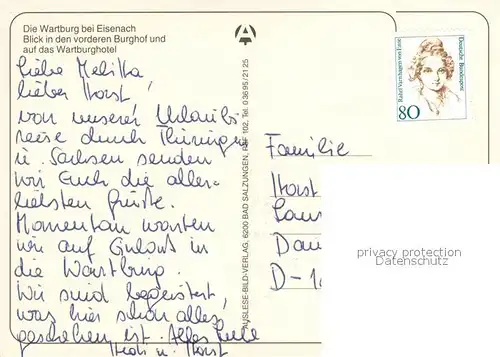 Die Wartburg bei Eisenach
Blick in den vorderen Burghof und
auf das Wartburghotel
Liebe Melitta!
lieber Horst,
von unserer Urlaubs
reise durch Thüringen
u. Sachsen senden
wir Euch die aller-
liebsten Grüße.
Momentan warten
wir auf Einlass in
die Wartburg.
Wir sind begeistert,
was hier schon alles
geschehen ist. Alles Liebe
u. Horst
AUSLESE-BILD-VERLAG, 6200 BAD SALZUNGEN, PSF 102, Tel. 03695/21 25
Rahel Varnhagen von Ense
Deutsche Bundespost
80
Familie
Horst
D-1
privacy protection
Datenschutz